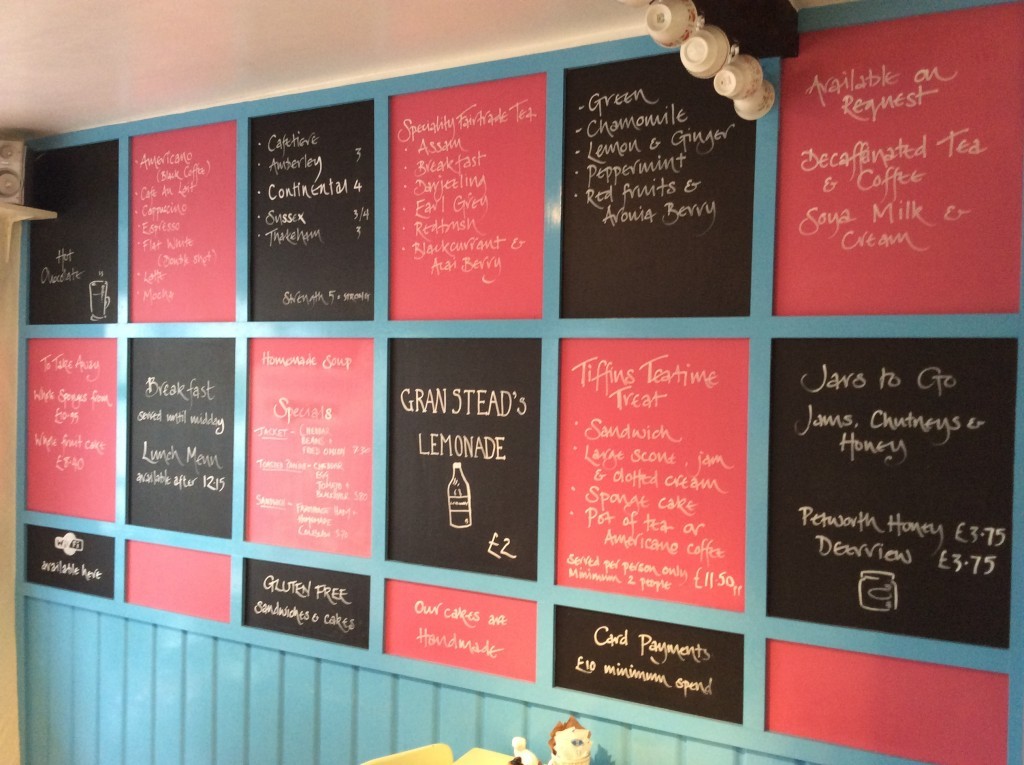 Hot
Chocolate
· Americano
(Black Coffee)
· Cafe Au Lait
· Cappuccino
· Espresso
· Flat White
(Double shot)
· Latte
· Mocha
· Cafetiere
· Amberley 3
· Continental 4
· Sussex 3/4
· Thakeham 3
Strength 5 = strong
Speciality Fairtrade Tea
· Assam
· Breakfast
· Darjeeling
· Earl Grey
· Redbush
· Blackcurrant &
Acai Berry
- Green
- Chamomile
- Lemon & Ginger
· Peppermint
· Red fruits &
Aronia Berry
Available on
Request
Decaffinated Tea
& Coffee
Soya Milk &
Cream
To Take Away
Whole Sponges from
Whole fruit cake
Breakfast
served until midday
Lunch Menu
available after 12:15
Homemade Soup
Specials
Jacket -
Fried Onion 7.30
GRAN STEAD'S
LEMONADE
£2
Tiffins Teatime
Treat
· Sandwich
· Large scone, jam
& clotted cream
· Sponge cake
· Pot of tea or
Americano coffee
Served per person only
Minimum 2 people £11.50
Jars to Go
Jams, Chutneys &
Honey
Petworth Honey £3.75
Deerview £3.75
Wi Fi
available here
GLUTEN FREE
Sandwiches & cakes
Our cakes are
Handmade
Card Payments
£10 minimum spend